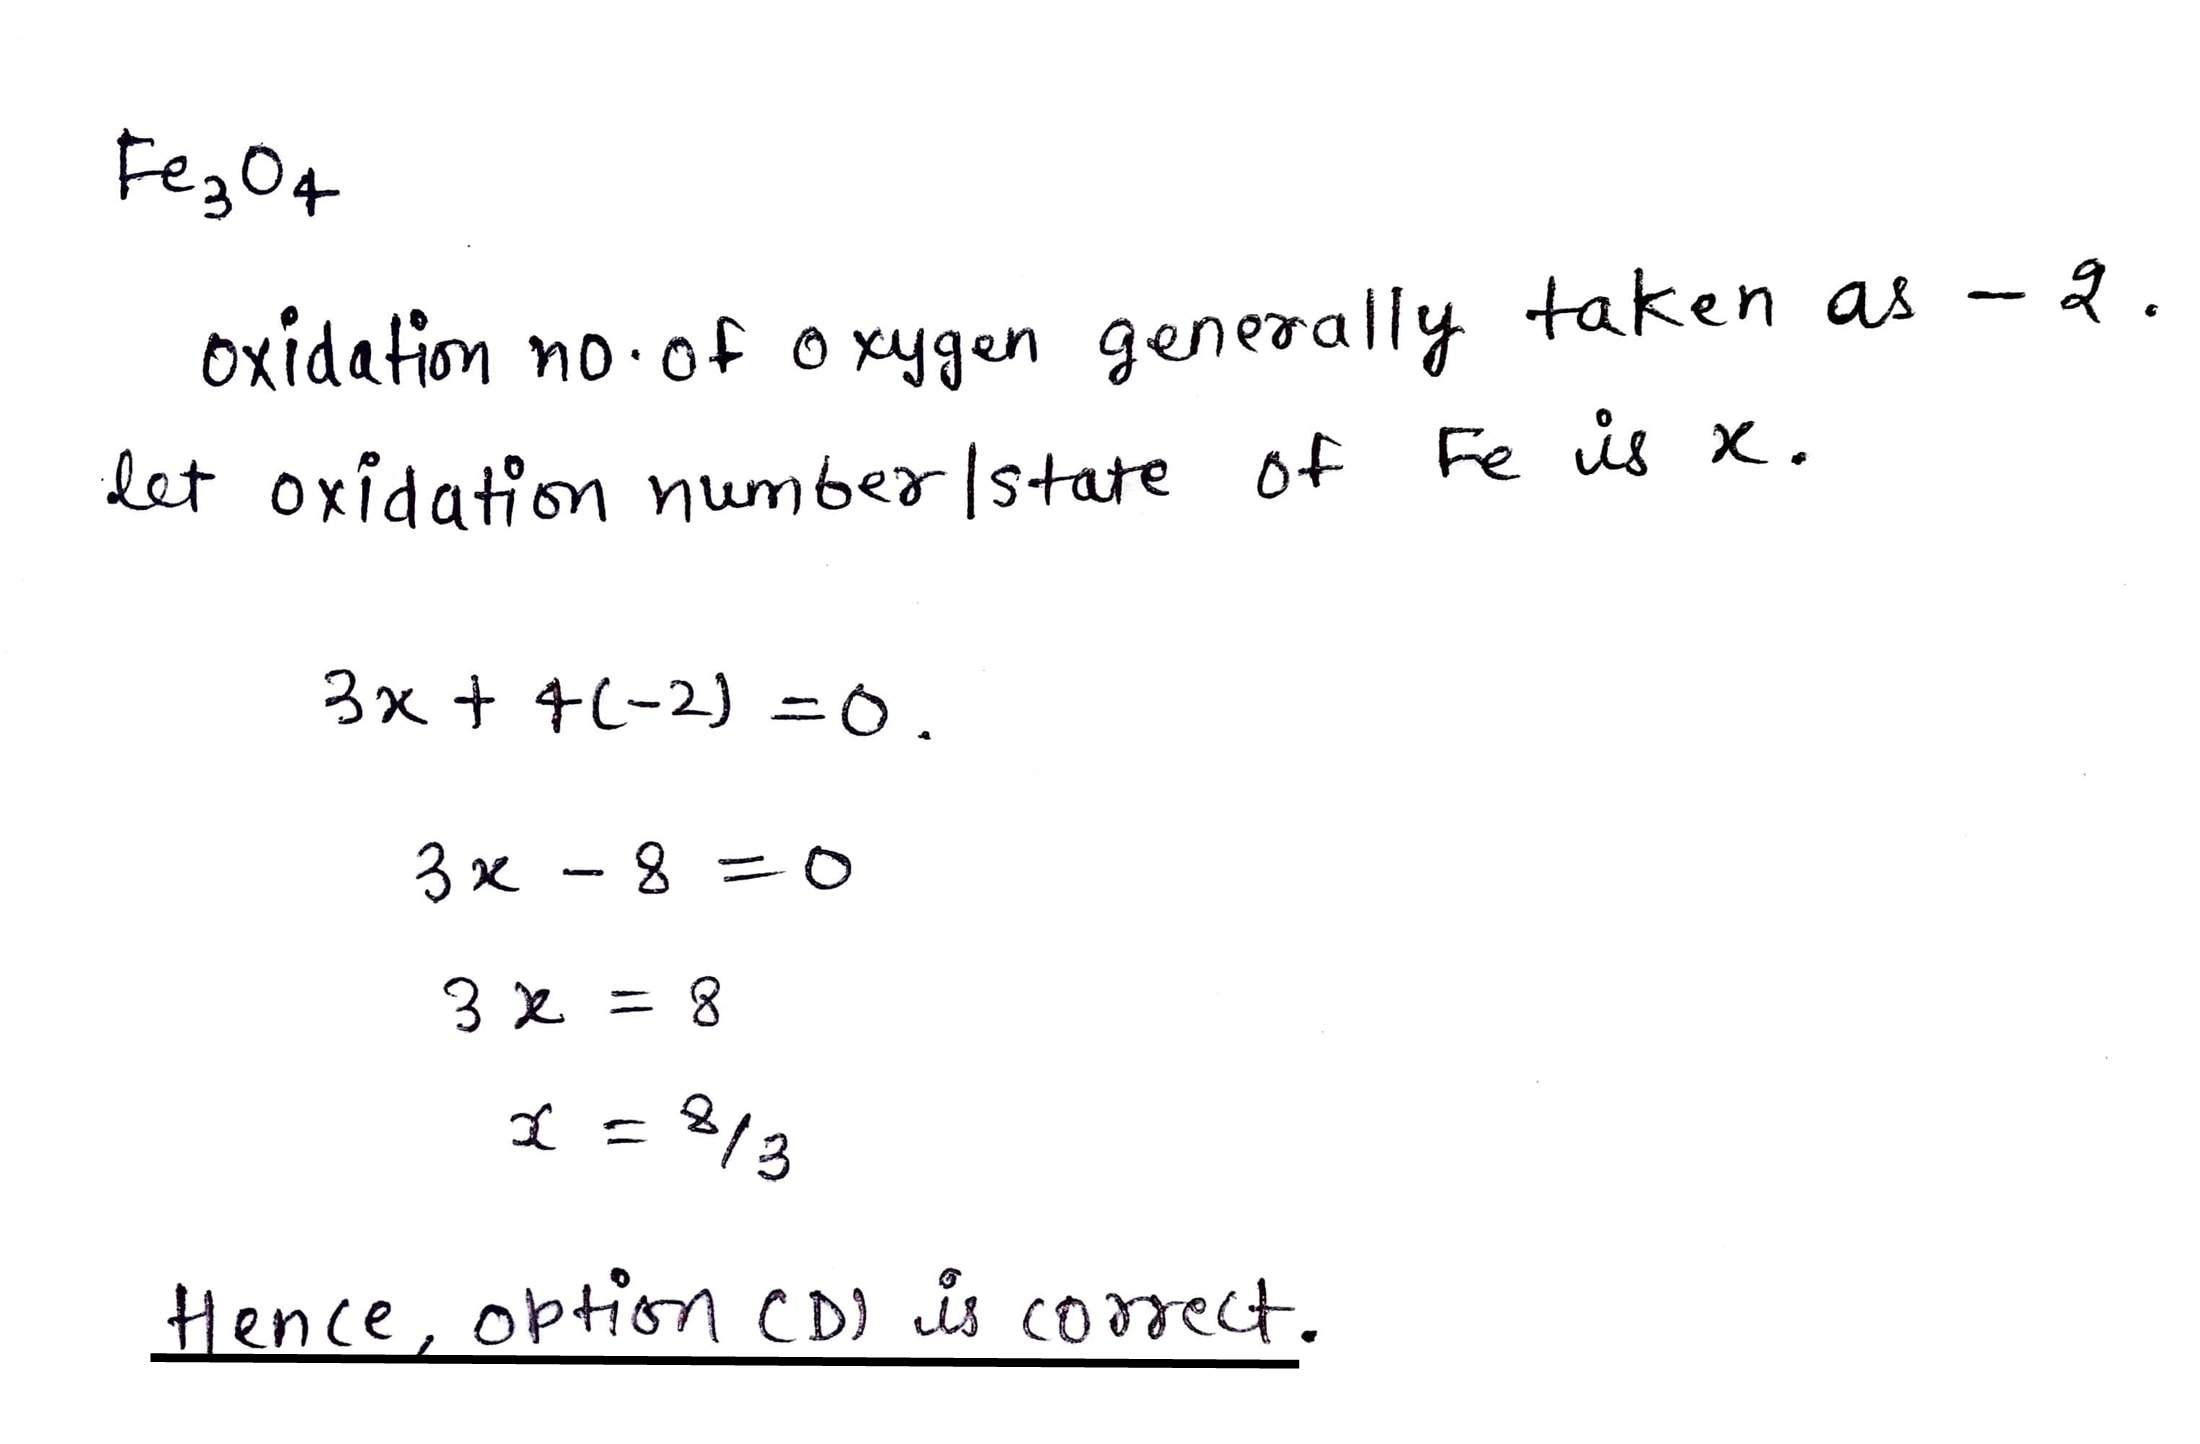 Fe₃O₄
oxidation no. of oxygen generally taken as - 2.
let oxidation number/state of Fe is x.
3x + 4(-2) = 0.
3x - 8 = 0
3x = 8
x = 8/3
Hence, option (D) is correct.